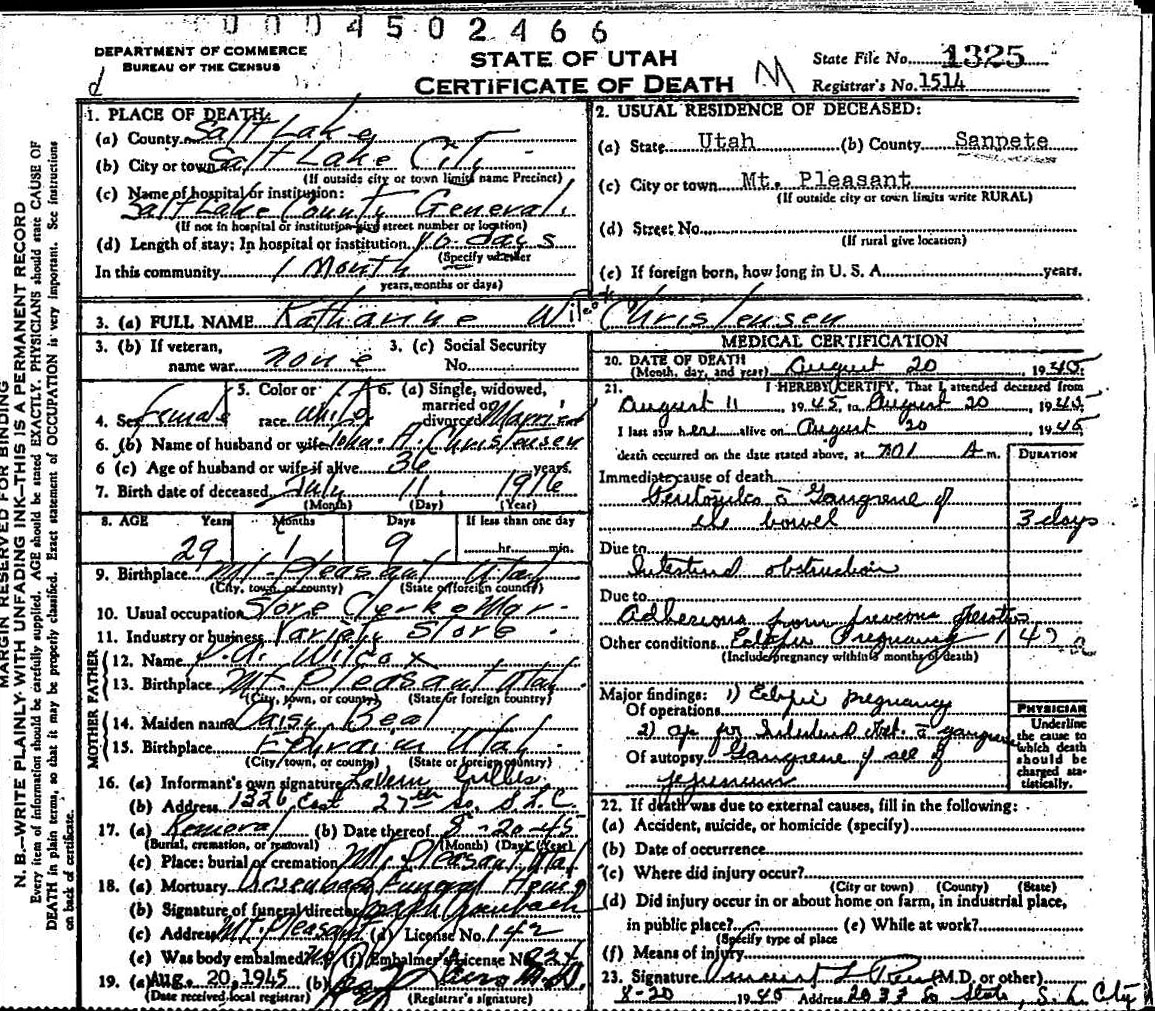 0004502466
DEPARTMENT OF COMMERCE
BUREAU OF THE CENSUS
d
STATE OF UTAH
CERTIFICATE OF DEATH
M
State File No. 1325
Registrar's No. 1514
MARGIN RESERVED FOR BINDING
N. B.—WRITE PLAINLY WITH UNFADING INK—THIS IS A PERMANENT RECORD
Every item of information should be carefully supplied. AGE should be stated EXACTLY. PHYSICIANS should state CAUSE OF
DEATH in plain terms, so that it may be properly classified. Exact statement of OCCUPATION is very important. See instructions
on back of certificate.
1. PLACE OF DEATH:
(a) County Salt Lake
(b) City or town Salt Lake City
(If outside city or town limits name Precinct)
(c) Name of hospital or institution:
Salt Lake County General
(If not in hospital or institution give street number or location)
(d) Length of stay: In hospital or institution days
(Specify whether
In this community 1 Month
years, months or days)
2. USUAL RESIDENCE OF DECEASED:
(a) State Utah (b) County Sanpete
(c) City or town Mt. Pleasant
(If outside city or town limits write RURAL)
(d) Street No.
(If rural give location)
(e) If foreign born, how long in U. S. A. years.
3. (a) FULL NAME Katharine Wilcox Christensen
3. (b) If veteran, name war none
3. (c) Social Security No.
4. Sex Female
5. Color or race White
6. (a) Single, widowed, married or divorced Married
6. (b) Name of husband or wife John A. Christensen
6 (c) Age of husband or wife if alive 36 years.
7. Birth date of deceased July 11 1916
(Month) (Day) (Year)
8. AGE Years Months Days If less than one day
29 1 9 hr. min.
9. Birthplace Mt. Pleasant Utah
(City, town, or county) (State or foreign country)
10. Usual occupation Store Clerk
11. Industry or business Variety Store
FATHER
12. Name A. Wilcox
13. Birthplace Mt. Pleasant Utah
(City, town, or county) (State or foreign country)
MOTHER
14. Maiden name Daisy Beal
15. Birthplace Ephraim Utah
(City, town, or county) (State or foreign country)
16. (a) Informant's own signature LaVern
(b) Address 1326 East 27th So. S.L.C.
17. (a) Removal (b) Date thereof 8-20-45
(Burial, cremation, or removal) (Month) (Day) (Year)
(c) Place: burial or cremation Mt. Pleasant Utah
18. (a) Mortuary Funeral Home
(b) Signature of funeral director
(c) Address Mt. Pleasant (d) License No. 142
(e) Was body embalmed? (f) Embalmer's License No.
19. (a) Aug. 20, 1945 (b)
(Date received local registrar) (Registrar's signature)
MEDICAL CERTIFICATION
20. DATE OF DEATH
(Month, day, and year) August 20, 1945
21. I HEREBY CERTIFY, That I attended deceased from
August 11, 1945 to August 20, 1945
I last saw her alive on August 20, 1945
death occurred on the date stated above, at 701 A m.
DURATION
Immediate cause of death
Peritonitis c̄ Gangrene of
the bowel 3 days
Due to
Intestinal obstruction
Due to
Adhesions from previous operation
Other conditions Ectopic Pregnancy
(Include pregnancy within 3 months of death)
Major findings: 1) Ectopic pregnancy
Of operations
2) Op for Intestinal Obst. c̄ gangrene
Of autopsy Gangrene of
jejunum
PHYSICIAN
Underline
the cause to
which death
should be
charged sta-
tistically.
22. If death was due to external causes, fill in the following:
(a) Accident, suicide, or homicide (specify)
(b) Date of occurrence
(c) Where did injury occur?
(City or town) (County) (State)
(d) Did injury occur in or about home on farm, in industrial place,
in public place? (e) While at work?
(Specify type of place
(f) Means of injury
23. Signature (M.D. or other)
8-20 1945 Address 2033 So State, S. L. City